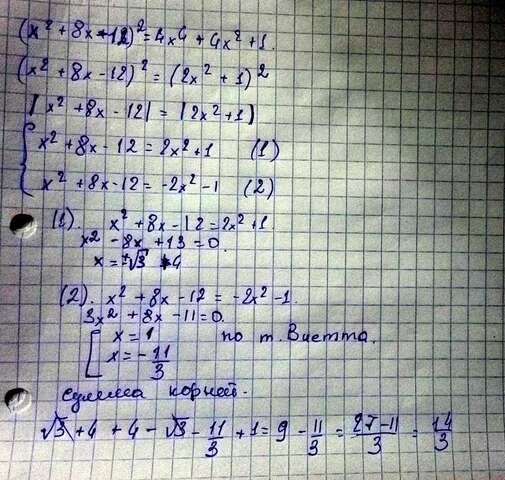 (x² + 8x - 12)² = 4x⁴ + 4x² + 1.
(x² + 8x - 12)² = (2x² + 1)²
|x² + 8x - 12| = |2x² + 1|
x² + 8x - 12 = 2x² + 1 (1)
x² + 8x - 12 = -2x² - 1 (2)
(1). x² + 8x - 12 = 2x² + 1.
x² - 8x + 13 = 0.
x = ±√3 + 4
(2). x² + 8x - 12 = -2x² - 1.
3x² + 8x - 11 = 0.
x = 1 по т. Виетта.
x = -11/3
сумма корней.
√3 + 4 + 4 - √3 - 11/3 + 1 = 9 - 11/3 = (27 - 11)/3 = 14/3